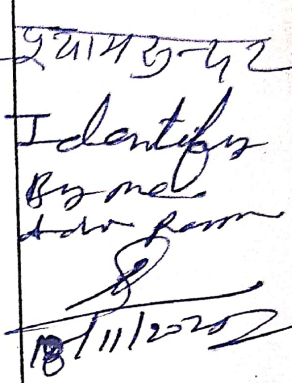 श्यामसुन्दर
Identify
By me
Adv Ram
18/11/2020